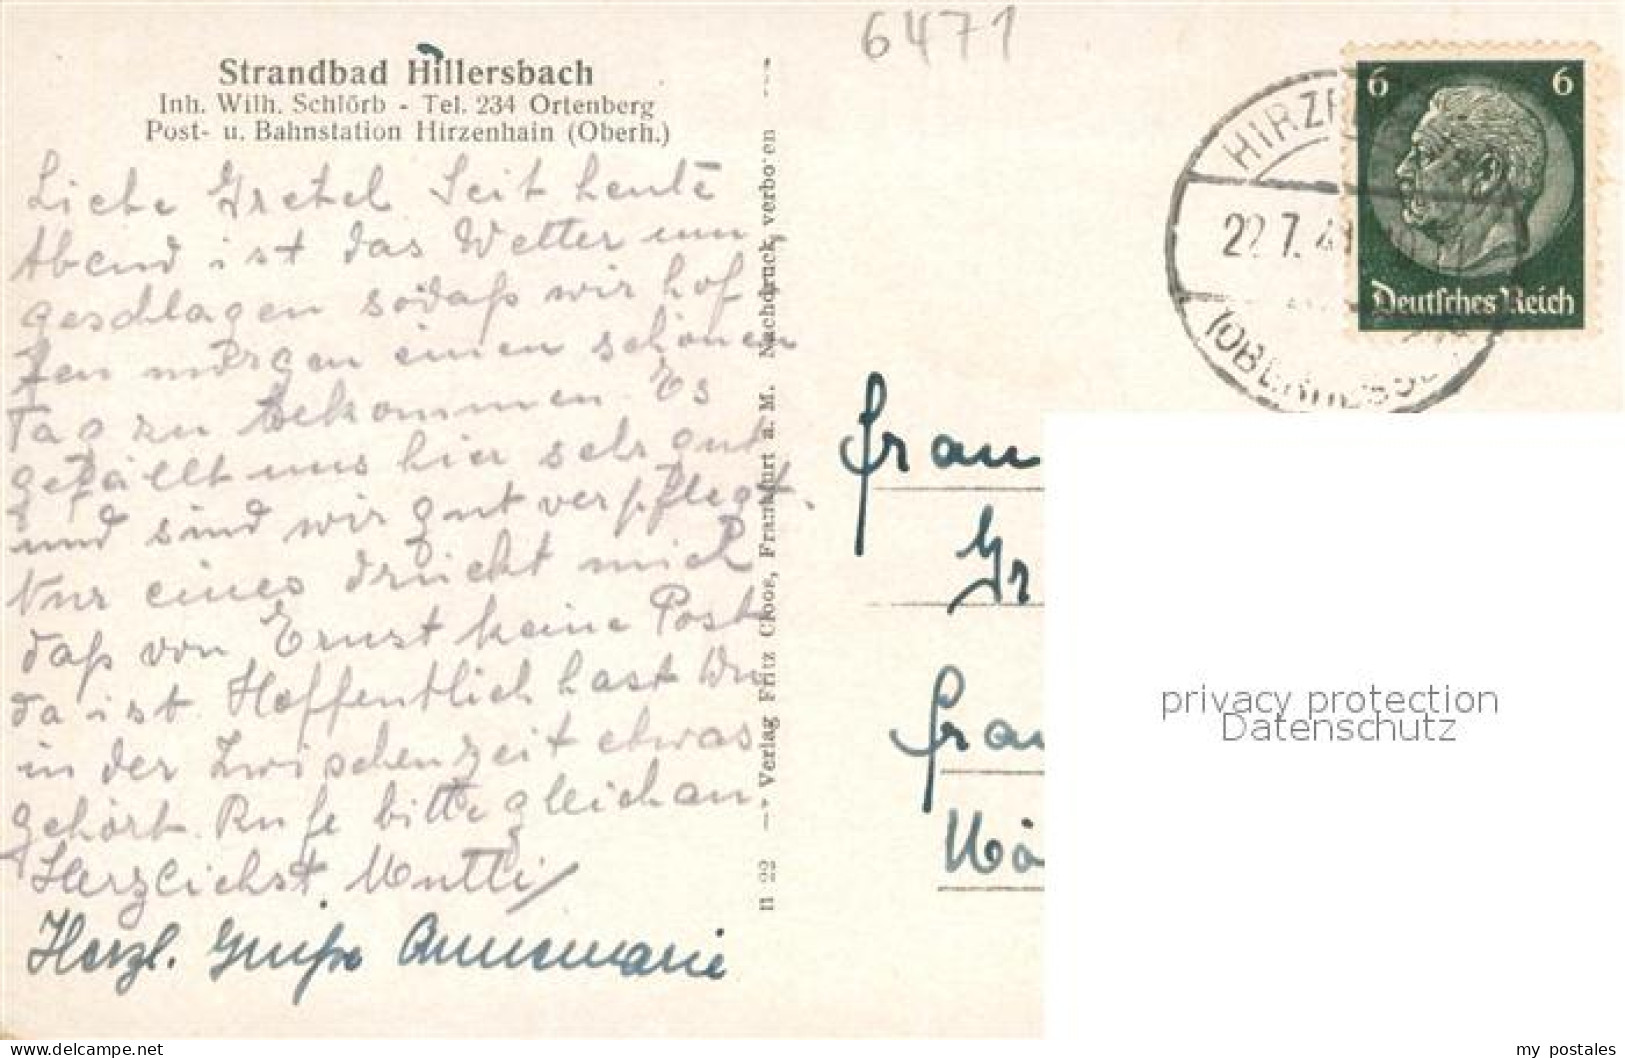 6471
Strandbad Hillersbach
Inh. Wilh. Schlörb - Tel. 234 Ortenberg
Post- u. Bahnstation Hirzenhain (Oberh.)
Liebe Gretel Seit heute
Abend ist das Wetter um
geschlagen sodaß wir hof
fen morgen einen schönen
Tag zu bekommen. Es
gefällt uns hier sehr gut
und sind wir gut verpflegt.
Nur eines drückt mich
daß von Ernst keine Post
da ist. Hoffentlich hast Du
in der Zwischenzeit etwas
gehört. Rufe bitte gleich an
Herzlichst Mutti
Herzl. Grüße Annemarie
11 22 — Verlag Fritz Cloos, Frankfurt a. M. Nachdruck verboten
6 6
Deutsches Reich
HIRZE
22.7.4
(OBERHESS
Frau
Gr
Fra
privacy protection
Datenschutz
www.delcampe.net
my_postales